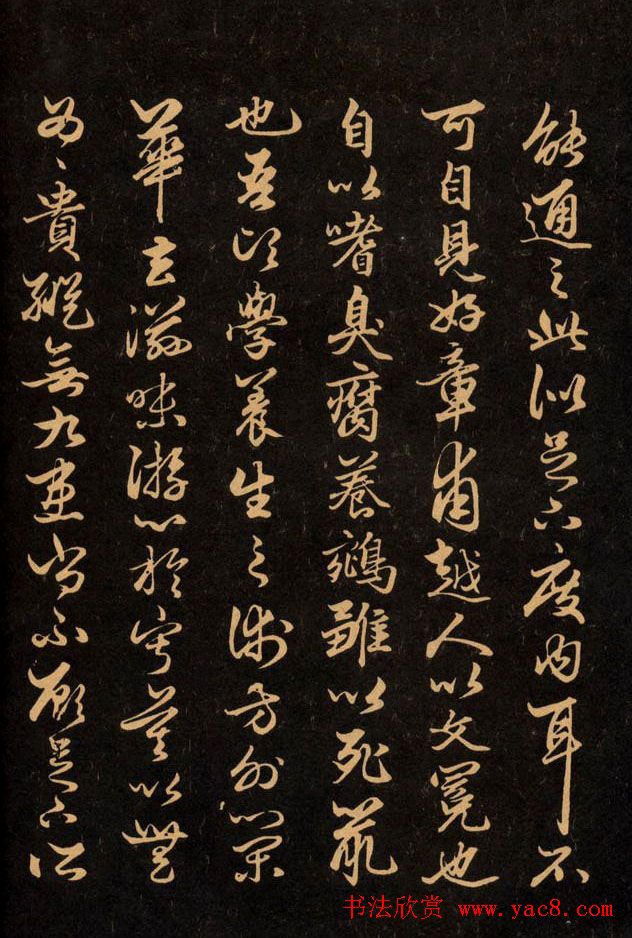 能通之此似足下度内耳不
可自見好章甫越人以文冕也
自以嗜臭腐養鵷雛以死鼠
也吾頃學養生之術方外榮
華去滋味游心於寂寞以無
為〻貴縱無九患尚不顧足下所
书法欣赏 www.yac8.com